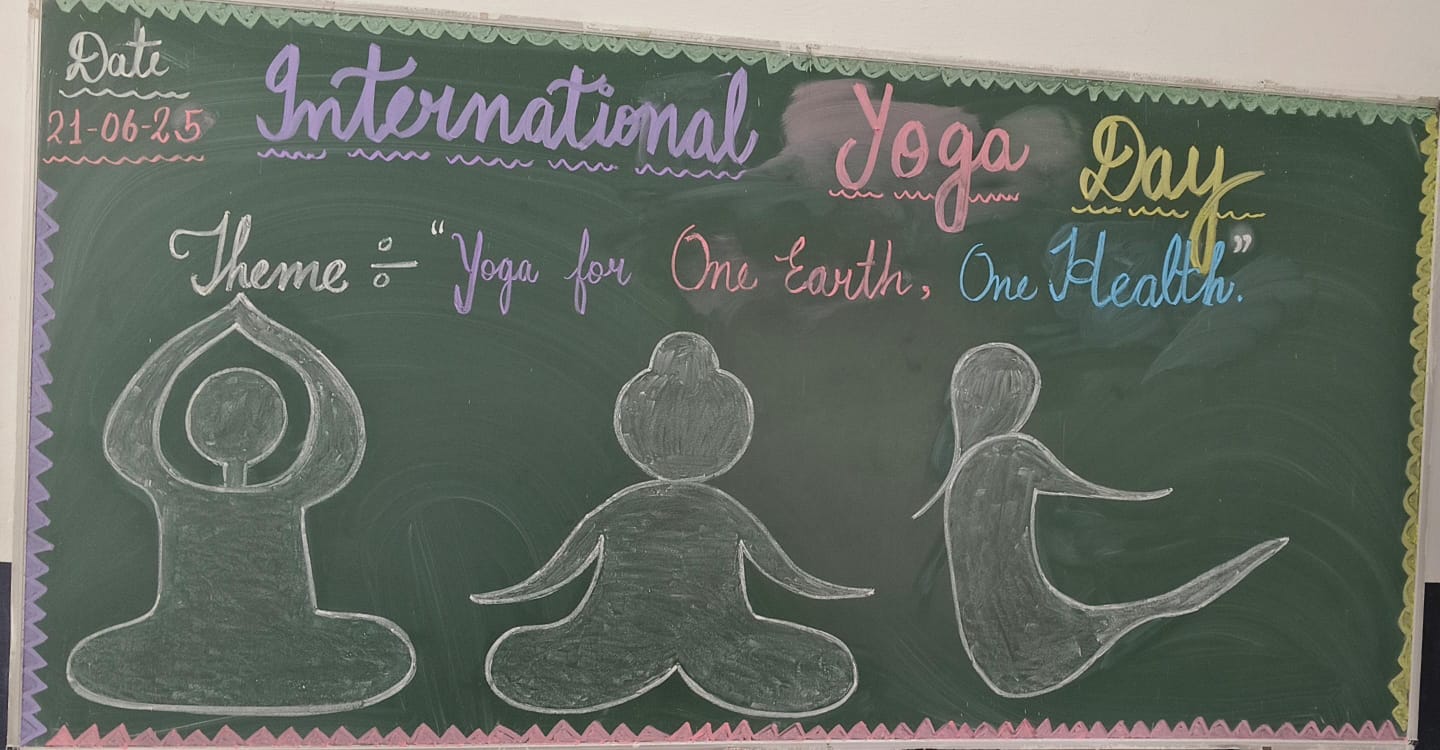 Date
21-06-25
International Yoga Day
Theme ÷ "Yoga for One Earth, One Health."